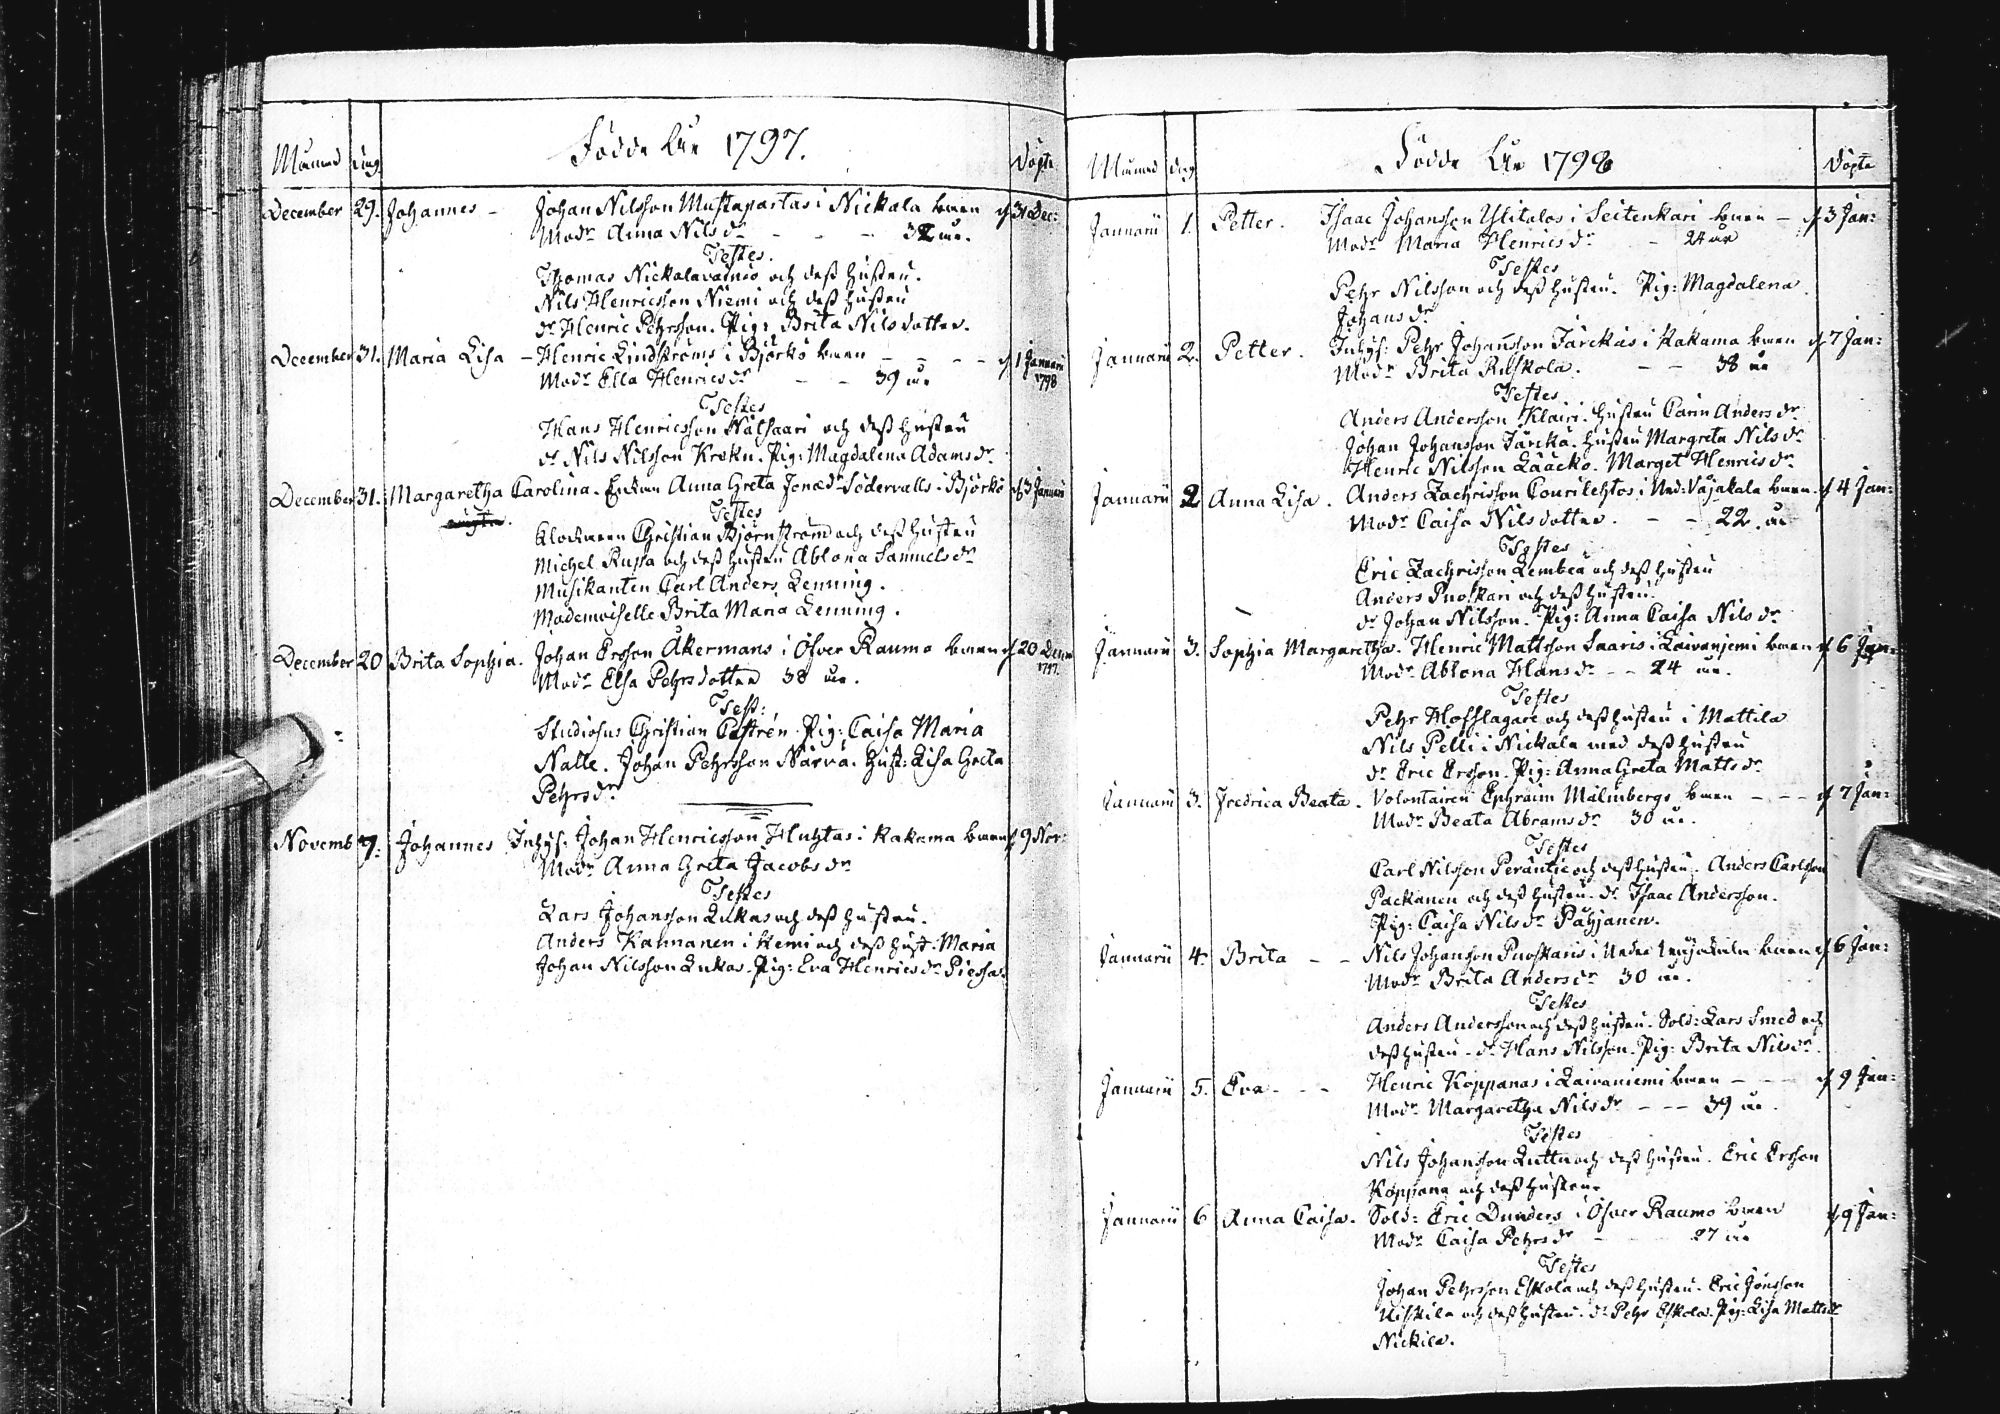 Födde År 1797.
Månad dag Döpte
December 29. Johannes - Johan Nilsson Mustaparta i Nickala barn d. 31 Dec:
Modr Anna Nils dr - - - 32 år.
Testes.
Thomas Nickalavainio och dess hustru.
Nils Henricsson Niemi och dess hustru
dr Henric Pehrsson. Pig: Brita Nils dotter.
December 31. Maria Lisa - Henric Lindströms i Björkö barn - - - - d. 1 Januarii
1798
Modr Ella Henrics dr - - 39 år
Testes
Hans Henricsson och dess hustru
dr Nils Nilsson Krekn. Pig: Magdalena Adams dr
December 31. Margaretha Carolina. Enkan Anna Greta Jonæ dr Södervalls i Björkö d. 3 Januarii
Testes
Klockaren Christian Björnström och dess hustru
Michel Russa och dess hustru Ablona Samuels dr
Musikanten Carl Anders Lenning.
Mademoiselle Brita Maria Lenning.
December 20 Brita Sophia. Johan Ersson Åkermans i Öfver Raumo barn d. 20 Decem
1797.
Modr Elsa Pehrs dotter 38 år.
Test:
Studiosus Christian Castrén. Pig: Caisa Maria
Natte. Johan Pehrsson Narva. Hust: Lisa Greta
Pehrs dr
Novemb 7. Johannes Inhys: Johan Henricsson Huhtas i Kakama barn d. 9 Nov:
Modr Anna Greta Jacobs dr
Testes
Lars Johansson Lukas och dess hustru.
Anders Kannanen i Kemi och dess hust: Maria
Johan Nilsson Lukas. Pig: Eva Henrics dr Piessa.
Födde År 1798
Månad dag Döpte
Januarii 1. Petter. Isaac Johansson Ylitalos i Seitenkari barn - d. 3 Jan:
Modr Maria Henrics dr - 24 år
Testes
Pehr Nilsson och dess hustru. Pig: Magdalena
Johans dr
Januarii 2. Petter. Inhys: Pehr Johansson Tärckäs i Kakama barn d. 7 Jan:
Modr Brita Ruskola. - - 38 år
Testes
Anders Andersson Klairi. hustru Carin Anders dr
Johan Johansson Tärckä. hustru Margreta Nils dr
Henric Nilsson Lääckö. Marget Henrics dr
Januarii 2 Anna Lisa. Anders Zachrisson Courilehtos i Ned: Vojakala barn d. 4 Jan:
Modr Caisa Nils dotter. - - 22. år
Testes
Eric Zachrisson Lembea och dess hustru
Anders Puoskari och dess hustru.
dr Johan Nilsson. Pig: Anna Caisa Nils dr
Januarii 3. Sophia Margaretha. Henric Mattsson Saaris i Laivaniemi barn d. 6 Jan:
Modr Ablona Hans dr - - 24 år.
Testes
Pehr Hofslagare och dess hustru i Mattila
Nils Pelli i Nickala med dess hustru
dr Eric Ersson. Pig: Anna Greta Matts dr
Januarii 3. Fredrica Beata. Volontairen Ephraim Malmbergs barn - - - d. 7 Jan:
Modr Beata Abrams dr 30 år.
Testes
Carl Nilsson Peräntie och dess hustru. Anders Carlsson
Packanen och dess hustru. dr Isaac Andersson.
Pig: Caisa Nils dr Pahjanen.
Januarii 4. Brita - - Nils Johansson Puoskaris i Nedre Vojakala barn d. 6 Jan:
Modr Brita Anders dr 30 år.
Testes
Anders Andersson och dess hustru. Sold: Lars Smed och
dess hustru - dr Hans Nilsson. Pig: Brita Nils dr
Januarii 5. Eva - - - Henric Koppanas i Laivaniemi barn - - - d. 9 Jan:
Modr Margaretha Nils dr - - - 39 år.
Testes
Nils Johansson Luttu och dess hustru. Eric Ersson
Koppana och dess hustru.
Januarii 6 Anna Caisa. Sold: Eric Dunders i Öfver Raumo barn d. 9 Jan:
Modr Caisa Pehrs dr - - - 27 år
Testes
Johan Pehrsson Eskola och dess hustru. Eric Jönsson
och dess hustru. dr Pehr Eskola. Pig: Lisa Matts dr
Nickila.